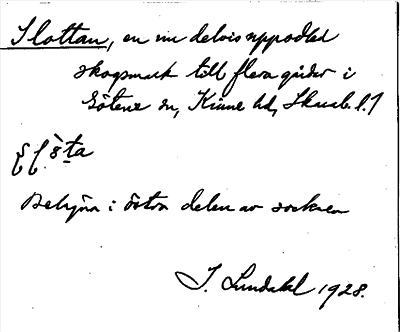 Slottan, en nu delvis uppodlad
skogsmark till flera gårdar i
Götene sn, Kinne hd, Skarab. l.
sta
Belägen i östra delen av socknen
I. Lundahl 1928.